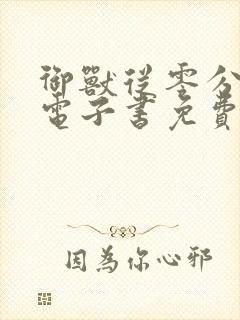 御獸從零分
電子書免費
因為你心邪